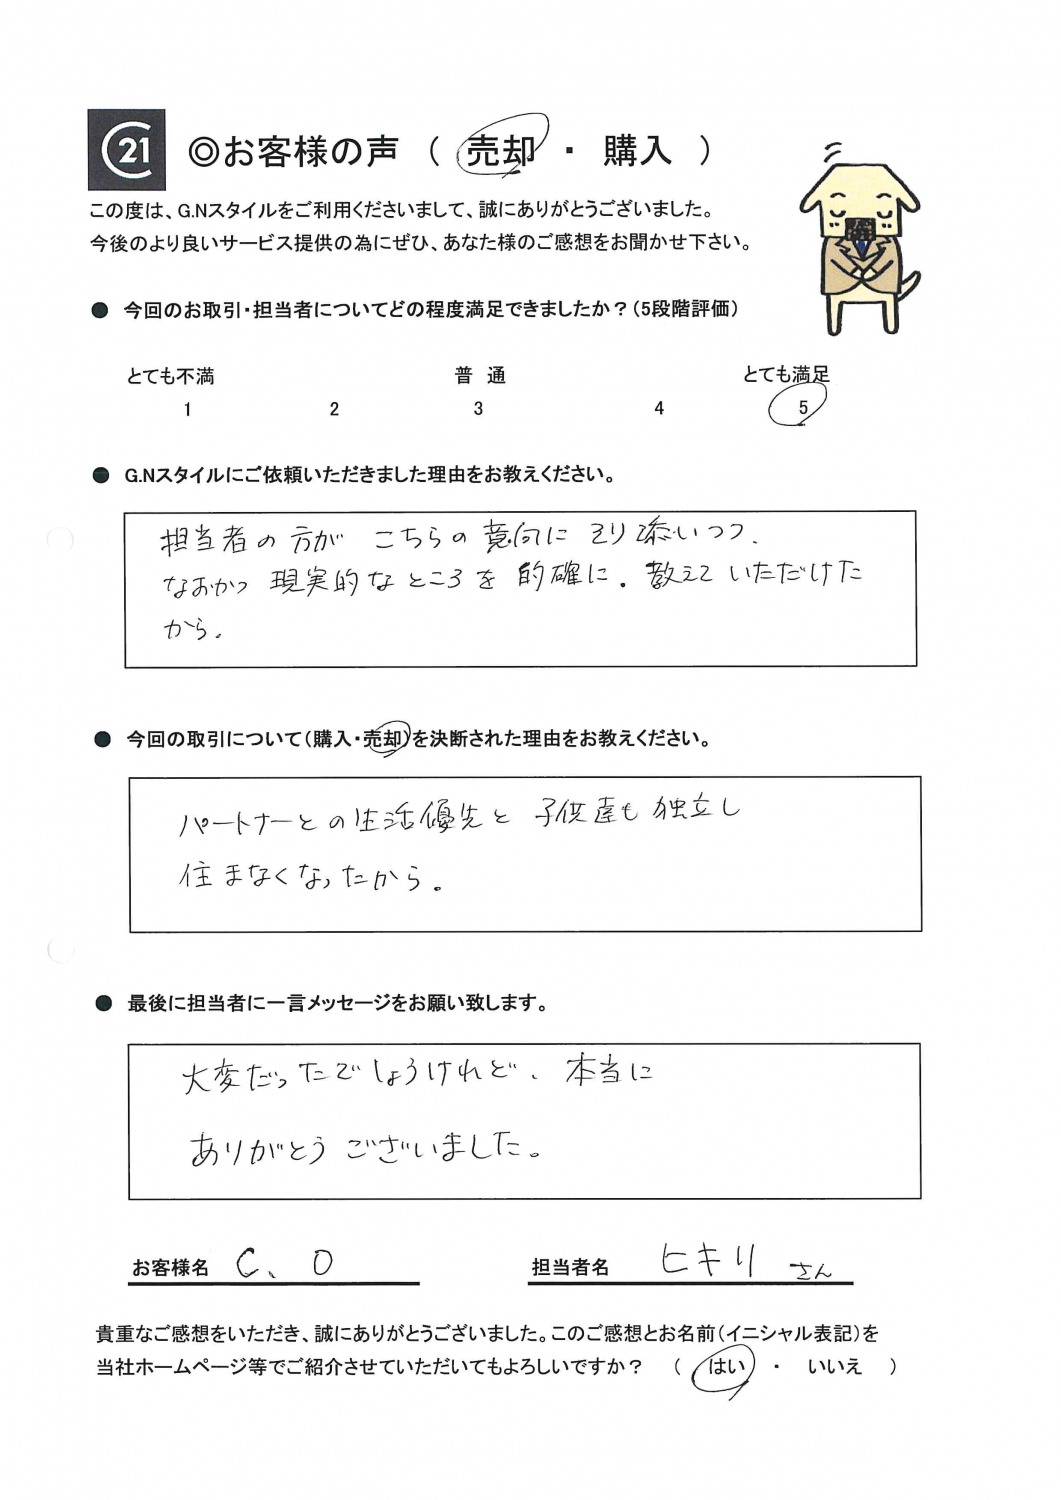 C21 ◎お客様の声 ( 売却 ・ 購入 )
この度は、G.Nスタイルをご利用くださいまして、誠にありがとうございました。
今後のより良いサービス提供の為にぜひ、あなた様のご感想をお聞かせ下さい。
● 今回のお取引・担当者についてどの程度満足できましたか?(5段階評価)
とても不満 普 通 とても満足
1 2 3 4 5
● G.Nスタイルにご依頼いただきました理由をお教えください。
担当者の方が こちらの意向に そり添いつつ、
なおかつ 現実的なところを 的確に。教えていただけた
から。
● 今回の取引について(購入・売却)を決断された理由をお教えください。
パートナーとの生活優先と 子供達も 独立し
住まなくなったから。
● 最後に担当者に一言メッセージをお願い致します。
大変だったでしょうけれど、本当に
ありがとう ございました。
お客様名 C、O 担当者名 ヒキリ さん
貴重なご感想をいただき、誠にありがとうございました。このご感想とお名前(イニシャル表記)を
当社ホームページ等でご紹介させていただいてもよろしいですか? ( はい ・ いいえ )